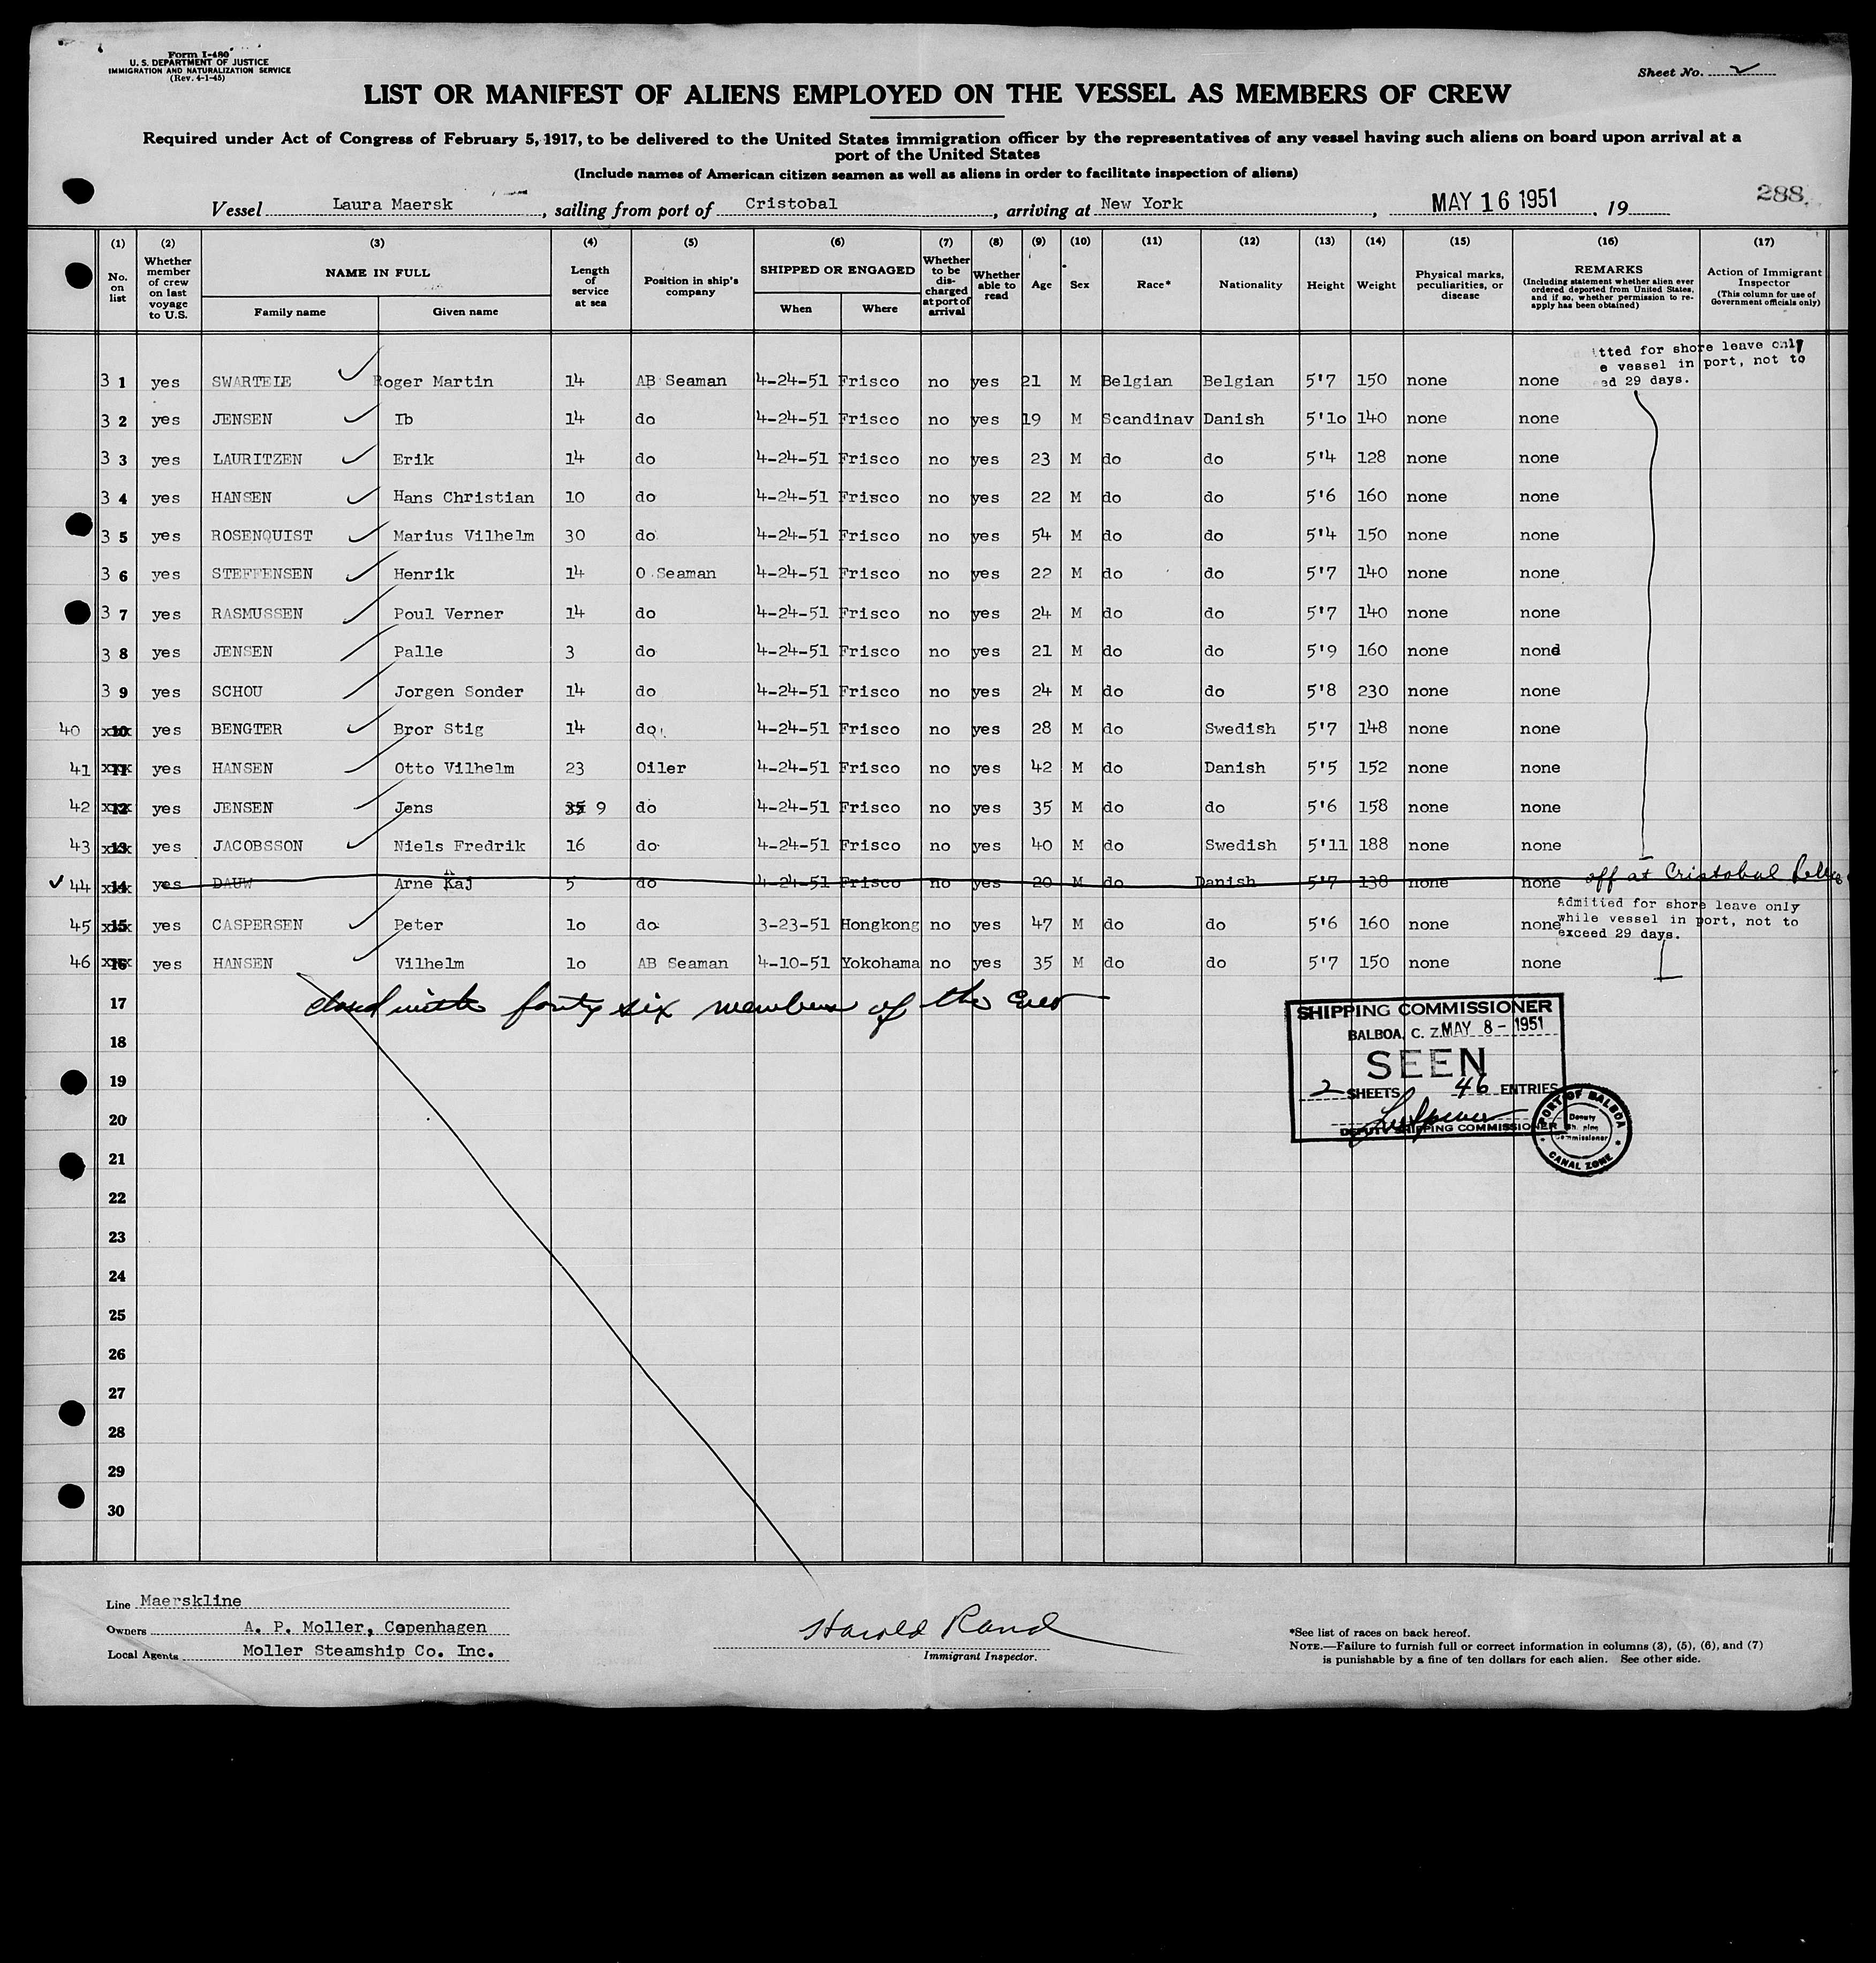 Form I-480
U. S. DEPARTMENT OF JUSTICE
IMMIGRATION AND NATURALIZATION SERVICE
(Rev. 4-1-45)
Sheet No. 2
LIST OR MANIFEST OF ALIENS EMPLOYED ON THE VESSEL AS MEMBERS OF CREW
Required under Act of Congress of February 5, 1917, to be delivered to the United States immigration officer by the representatives of any vessel having such aliens on board upon arrival at a
port of the United States
(Include names of American citizen seamen as well as aliens in order to facilitate inspection of aliens)
288
Vessel Laura Maersk, sailing from port of Cristobal, arriving at New York, MAY 16 1951, 19
(1) (2) (3) (4) (5) (6) (7) (8) (9) (10) (11) (12) (13) (14) (15) (16) (17)
No. on list
Whether member of crew on last voyage to U.S.
NAME IN FULL
Family name
Given name
Length of service at sea
Position in ship's company
SHIPPED OR ENGAGED
When
Where
Whether to be discharged at port of arrival
Whether able to read
Age
Sex
Race*
Nationality
Height
Weight
Physical marks, peculiarities, or disease
REMARKS
(Including statement whether alien ever ordered deported from United States, and if so, whether permission to reapply has been obtained)
Action of Immigrant Inspector
(This column for use of Government officials only)
tted for shore leave only
e vessel in port, not to
ed 29 days.
3 1 yes SWARTEIE Roger Martin 14 AB Seaman 4-24-51 Frisco no yes 21 M Belgian Belgian 5'7 150 none none
3 2 yes JENSEN Ib 14 do 4-24-51 Frisco no yes 19 M Scandinav Danish 5'10 140 none none
3 3 yes LAURITZEN Erik 14 do 4-24-51 Frisco no yes 23 M do do 5'4 128 none none
3 4 yes HANSEN Hans Christian 10 do 4-24-51 Frisco no yes 22 M do do 5'6 160 none none
3 5 yes ROSENQUIST Marius Vilhelm 30 do 4-24-51 Frisco no yes 54 M do do 5'4 150 none none
3 6 yes STEFFENSEN Henrik 14 O Seaman 4-24-51 Frisco no yes 22 M do do 5'7 140 none none
3 7 yes RASMUSSEN Poul Verner 14 do 4-24-51 Frisco no yes 24 M do do 5'7 140 none none
3 8 yes JENSEN Palle 3 do 4-24-51 Frisco no yes 21 M do do 5'9 160 none none
3 9 yes SCHOU Jorgen Sonder 14 do 4-24-51 Frisco no yes 24 M do do 5'8 230 none none
40 10 yes BENGTER Bror Stig 14 do 4-24-51 Frisco no yes 28 M do Swedish 5'7 148 none none
41 11 yes HANSEN Otto Vilhelm 23 Oiler 4-24-51 Frisco no yes 42 M do Danish 5'5 152 none none
42 12 yes JENSEN Jens 35 9 do 4-24-51 Frisco no yes 35 M do do 5'6 158 none none
43 13 yes JACOBSSON Niels Fredrik 16 do 4-24-51 Frisco no yes 40 M do Swedish 5'11 188 none none
44 14 yes DAUW Arne Kaj 5 do 4-24-51 Frisco no yes 20 M do Danish 5'7 138 none none off at Cristobal
Admitted for shore leave only
while vessel in port, not to
exceed 29 days.
45 15 yes CASPERSEN Peter 10 do 3-23-51 Hongkong no yes 47 M do do 5'6 160 none none
46 16 yes HANSEN Vilhelm 10 AB Seaman 4-10-51 Yokohama no yes 35 M do do 5'7 150 none none
17 closed with forty six members of the crew
18
19
20
21
22
23
24
25
26
27
28
29
30
SHIPPING COMMISSIONER
BALBOA, C. Z. MAY 8 - 1951
SEEN
2 SHEETS 46 ENTRIES
DEPUTY SHIPPING COMMISSIONER
PORT OF BALBOA
Deputy
Shipping
Commissioner
CANAL ZONE
Line Maerskline
Owners A. P. Moller, Copenhagen
Local Agents Moller Steamship Co. Inc.
Harold Rand
Immigrant Inspector.
*See list of races on back hereof.
NOTE.—Failure to furnish full or correct information in columns (3), (5), (6), and (7)
is punishable by a fine of ten dollars for each alien. See other side.